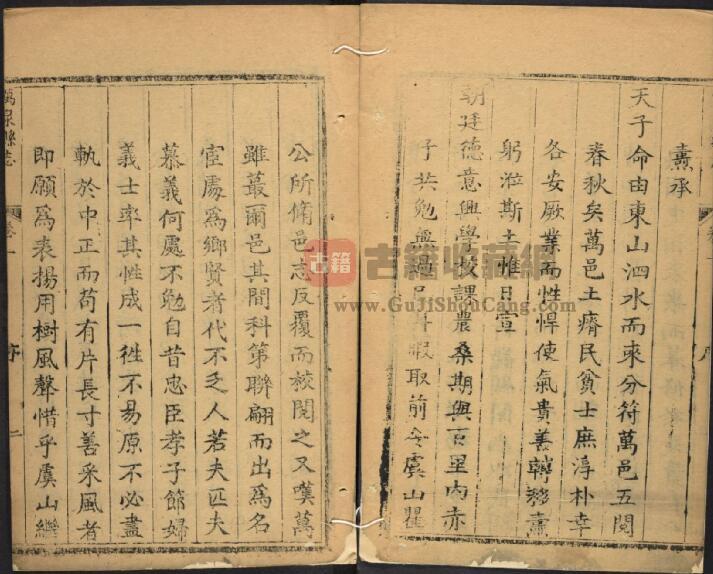 燾承
天子命由東山泗水而來分符萬邑五閱
春秋矣萬邑土瘠民貧士庶淳朴幸
各安厥業而性悍使氣貴善轉移燾
躬涖斯土惟日宣
朝廷德意興學校課農桑期與百里內赤
子共勉無過 暇取前 虞山瞿
公所脩邑志反覆而披閱之又嘆萬
雖蕞爾邑其間科第聯翩而出爲名
宦處爲鄉賢者代不乏人若夫匹夫
慕義何處不勉自昔忠臣孝子節婦
義士率其性成一徃不易原不必盡
軌於中正而苟有片長寸善采風者
即願爲表揚用樹風聲惜乎虞山繼
萬泉縣志
卷一
序
二
古籍
古籍收藏網
www.GuJiShouCang.com